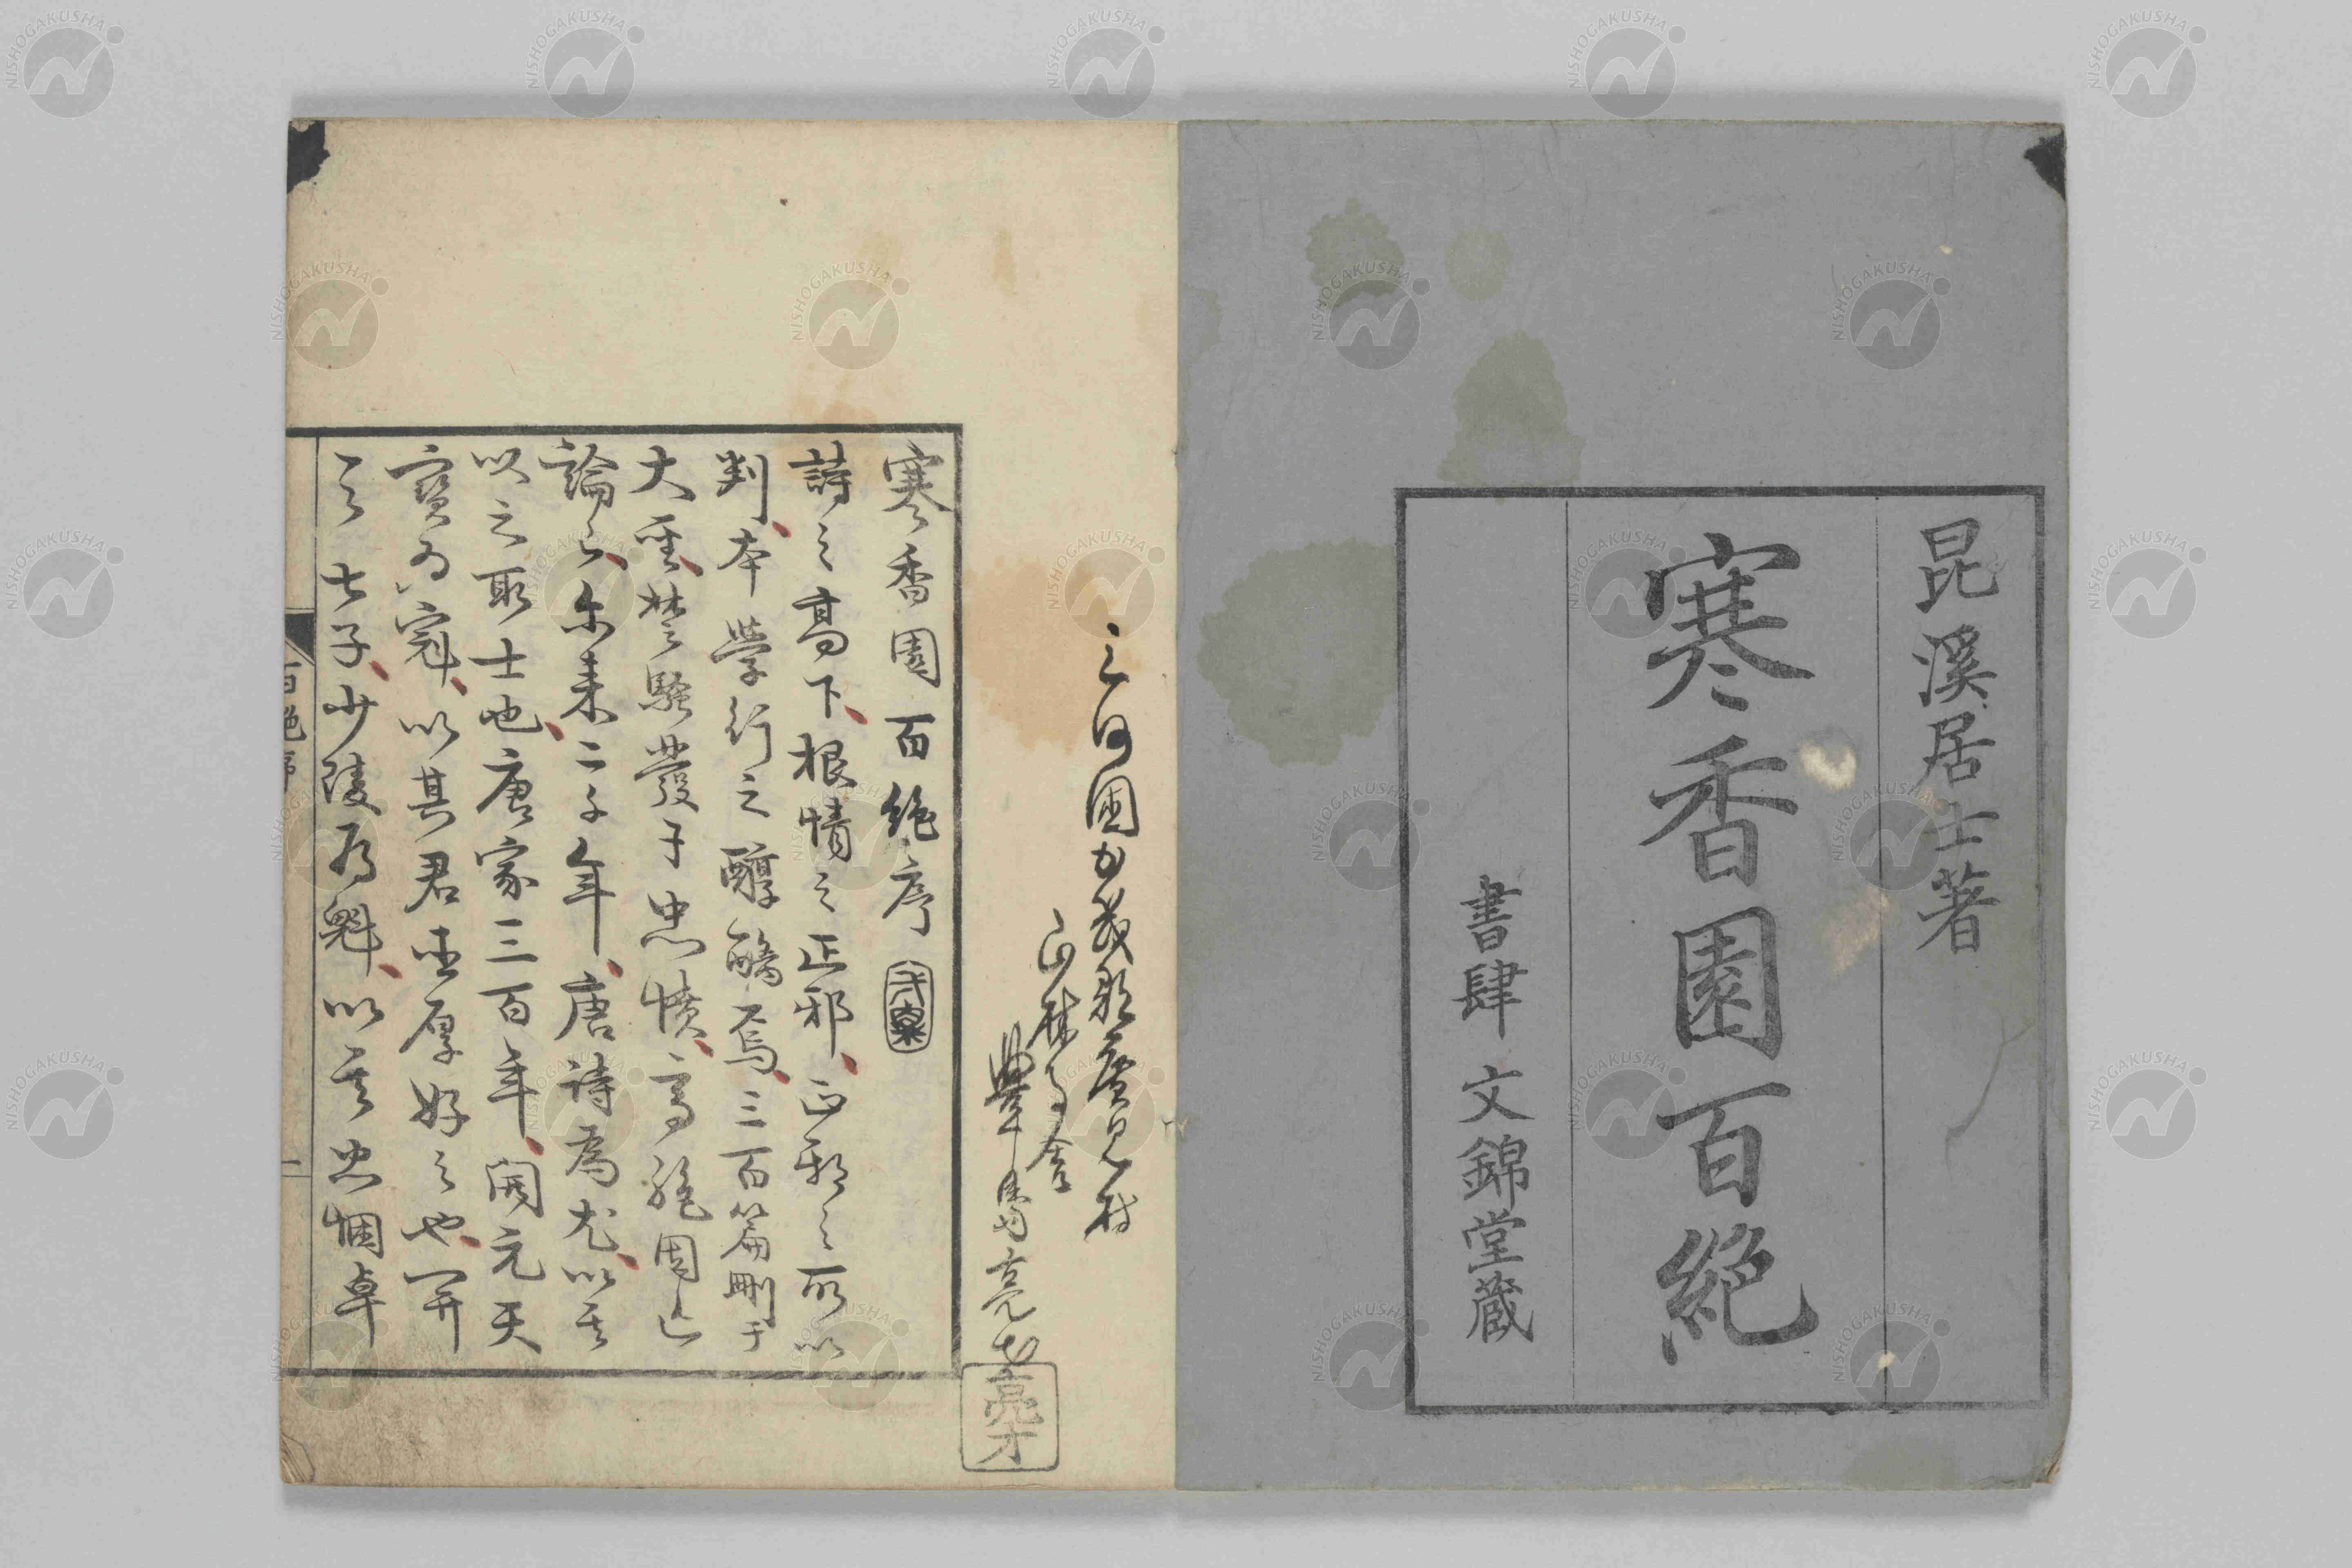 昆溪居士著
寒香園百絶
書肆 文錦堂蔵
三河國
山林
寒香園百絶序
詩之髙下根情之正邪正邪之所以
判本學行之醇醨焉三百篇刪于
大聖楚騷發于忠憤髙
論已尓来二千年唐詩為尤以其
以之取士也唐家三百年開元天
寶為冠以其君重厚好之也開
天七子少陵為魁以其忠悃卓
百絶序
一
亮才
NISHOGAKUSHA